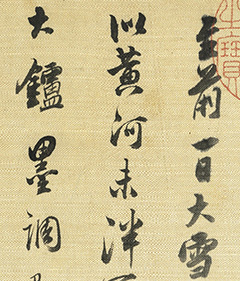 至前一日大雪
以黃河未泮
大鑪墨調